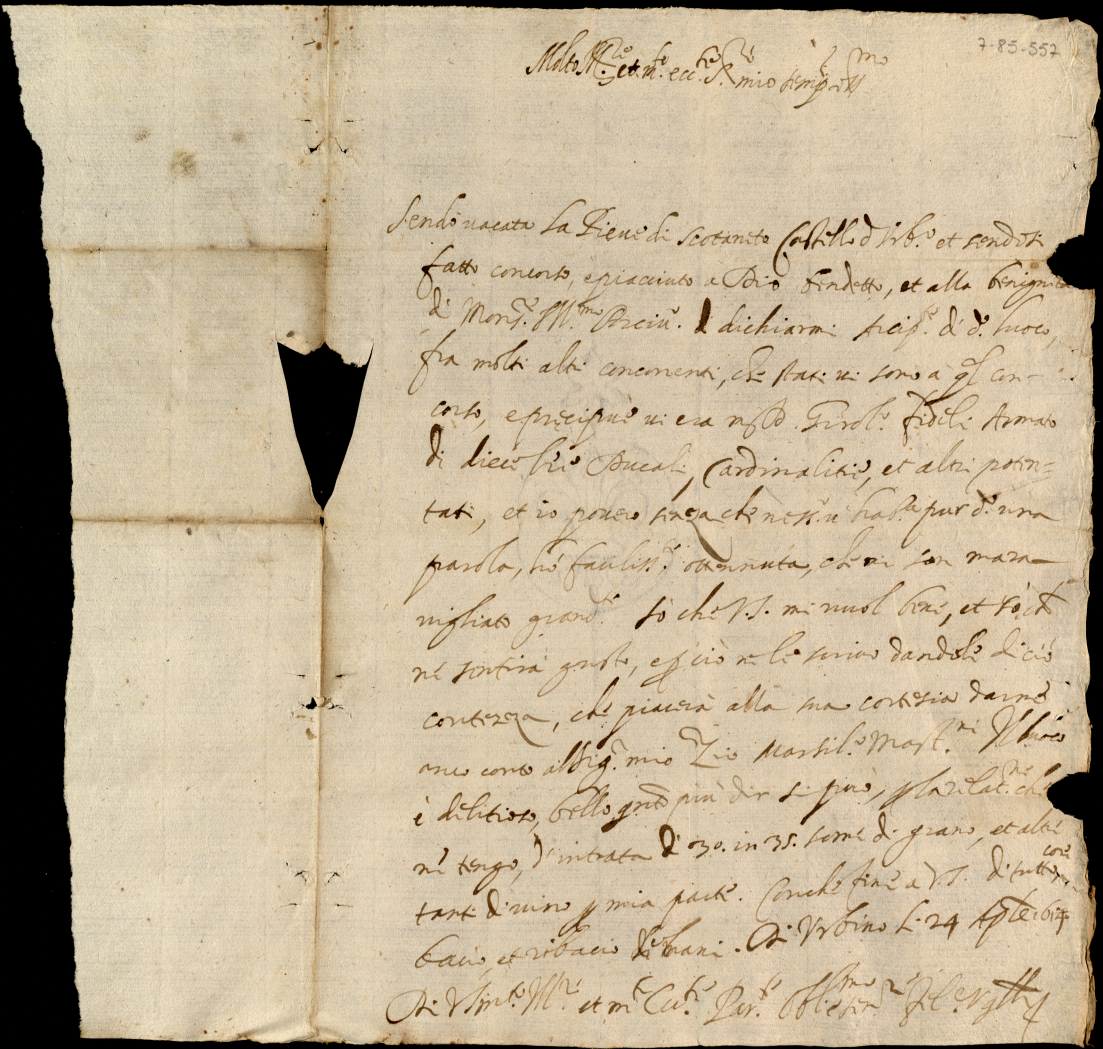 7-85-557
Molto Ill.re et m.to ecc.te S.re mio semp.
Sendo vacata la Pieve di Scotaneto Castello d Urb.o et sendosi
fatto concorso, e piacciuto a Dio bendetto, et alla benignita
di Mons.r Ill.mo dichiarmi di d.o luoco,
fra molti altri concorrenti, che stati vi sono a q.l con-
corso, e precipue vi era Girol.o fideli Armato
di diece l're Ducali, Cardinalitie, et altri poten=
tati, et io povero senza che ness.u hab.a pur d.o una
parola, hò facilis.te ottennuta, che mi son mara-
vigliato grand.te sò che V.S. mi vuol bene, et sò che
ne sentirà gusto, e p ciò ne le scrivo dandole di ciò
contezza, che piacerà alla sua cortesia darne
anco conto al Sig.r mio Zio Marsil.o Il luoco
è delitioso, bello q.nto più dir si può, p la relat.ne che
ne tengo, d'intrata di 30. in 35. some di grano, et altre
tante di vino p mia parte. Con che fine a V.S. di tutto core
bacio, et ribacio le mani. Di Urbino li 24 Ap.le 1614
Di V.S. m.to Ill.re et m.to Ecc.te Par.te Obl.mo